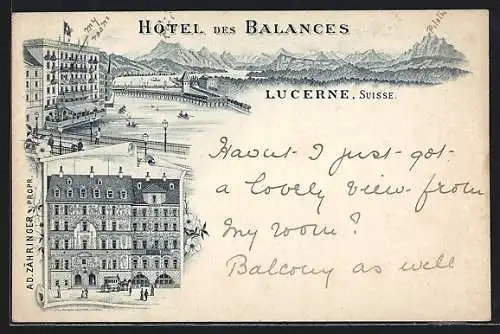 HÔTEL DES BALANCES
LUCERNE, SUISSE.
my
room
AD. ZÄHRINGER, PROPR.
Havnt I just got
a lovely view from
my room?
Balcony as well